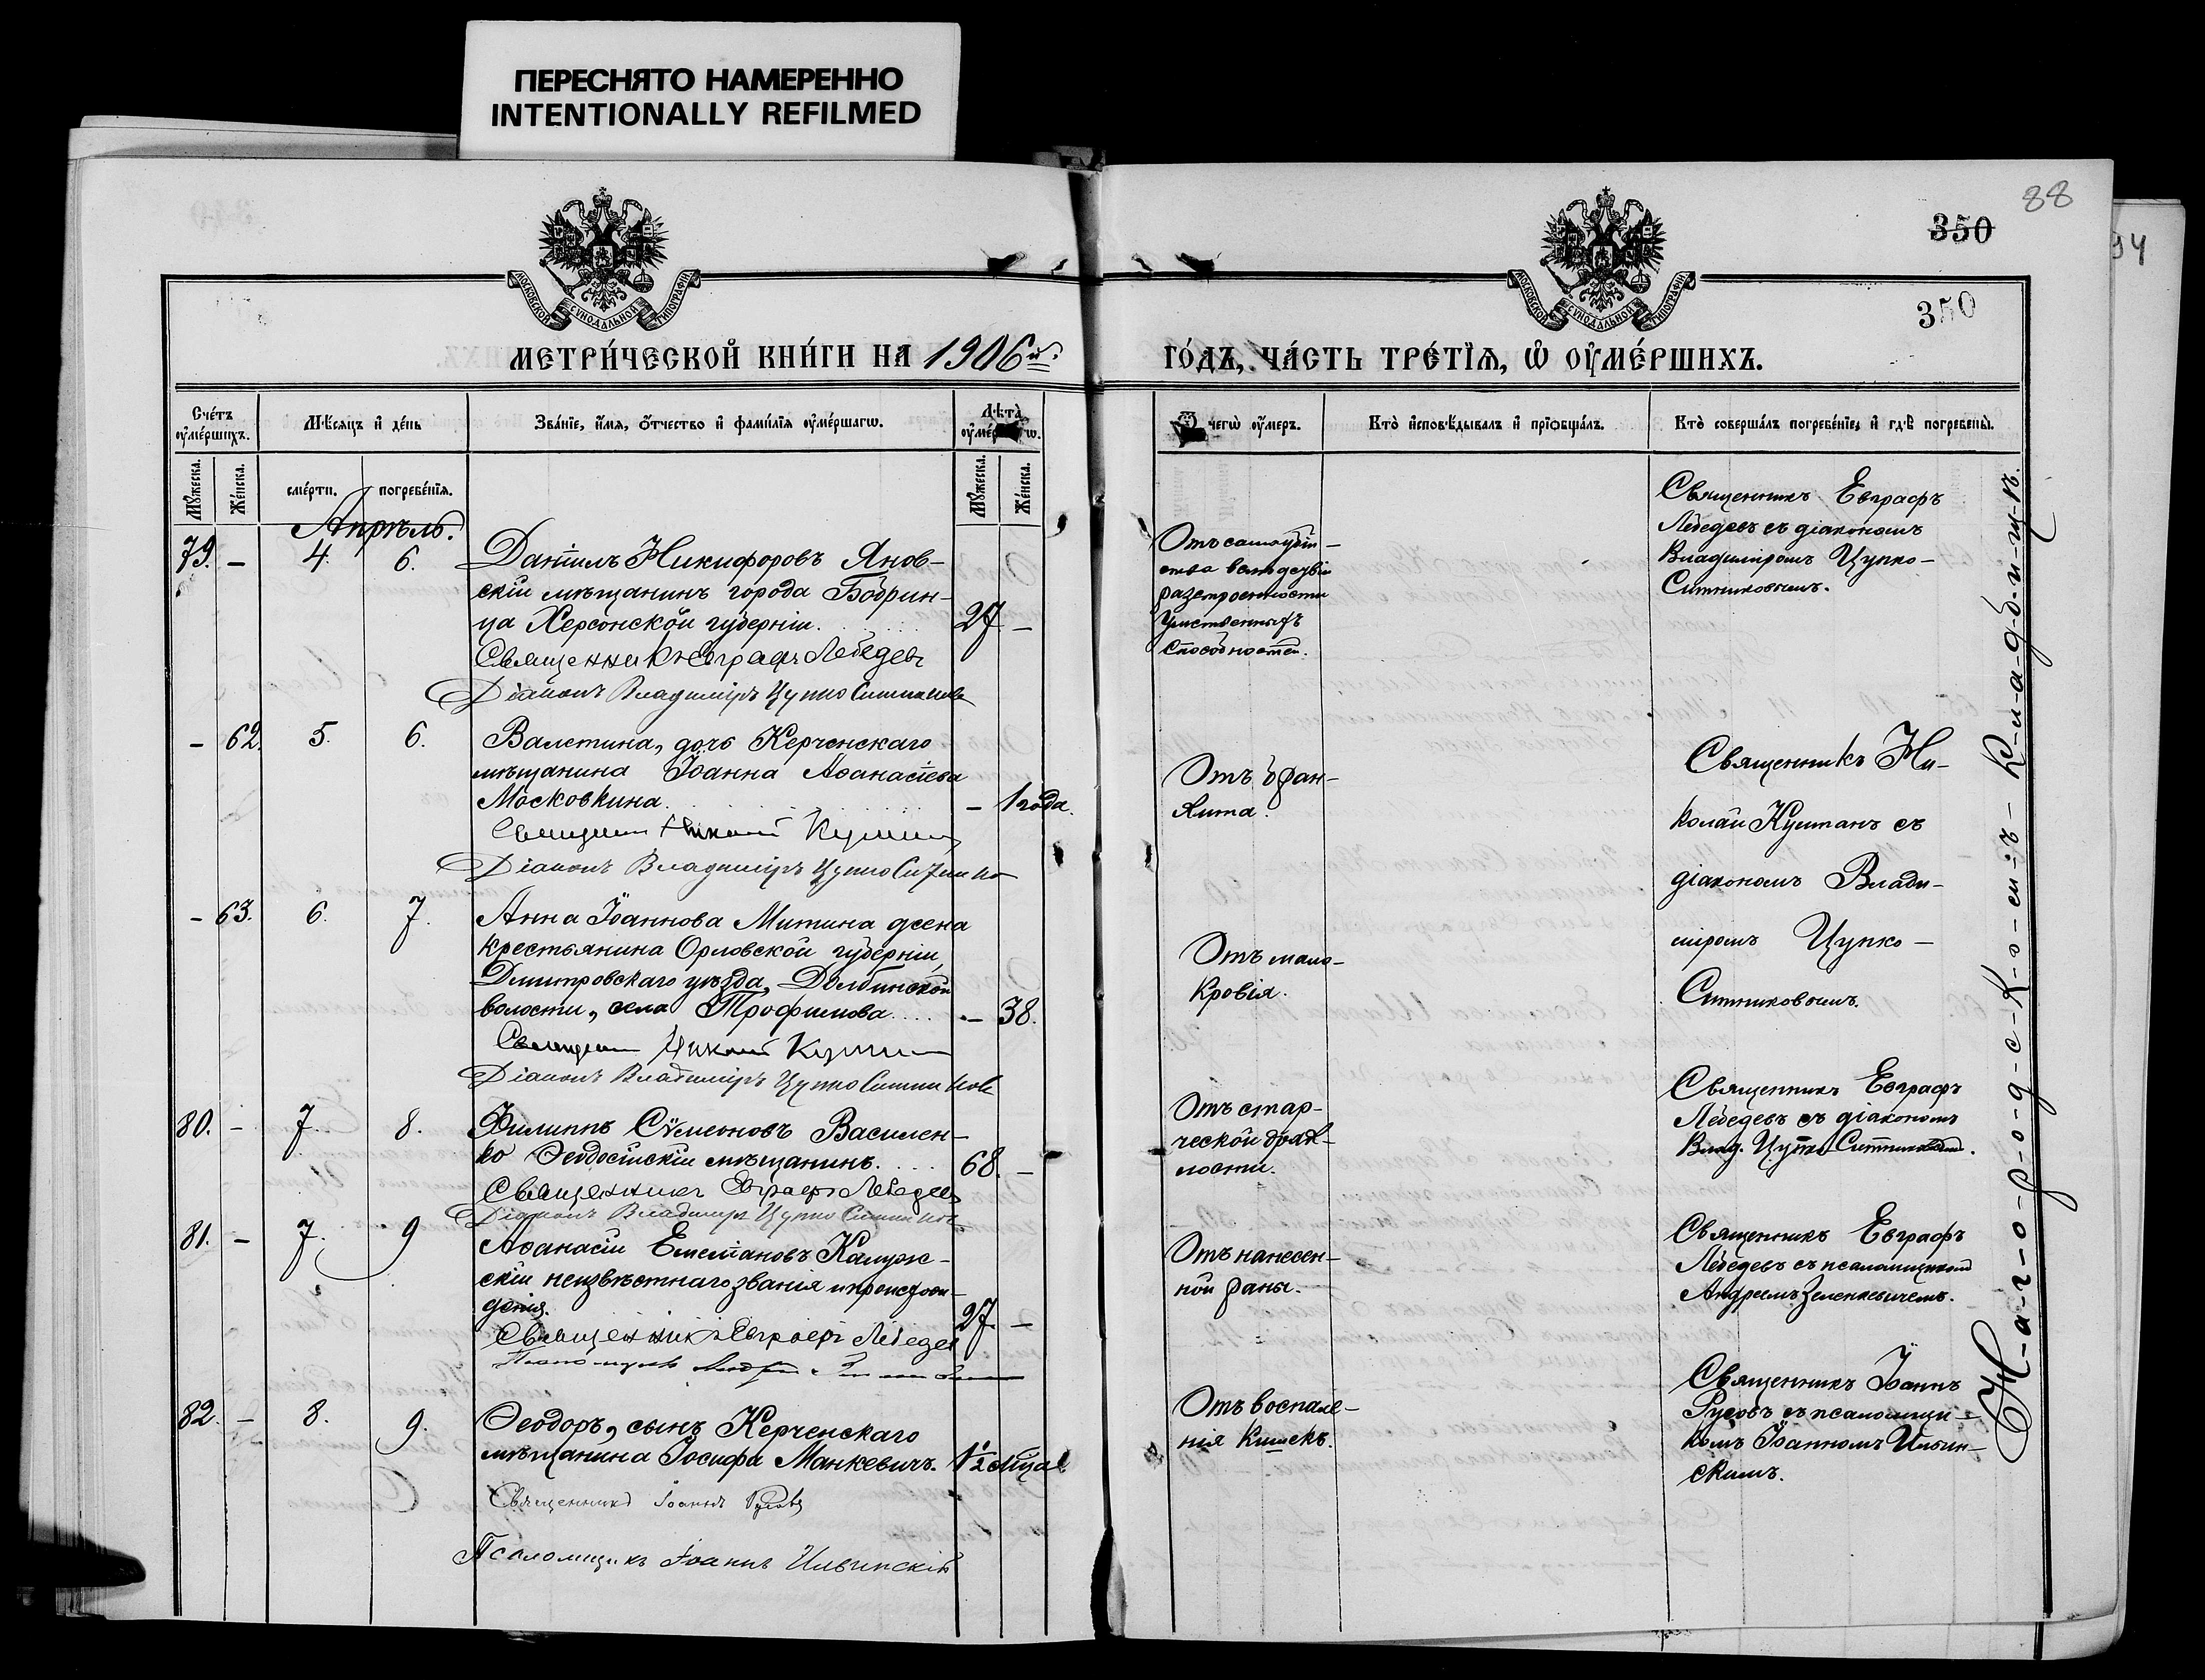 ПЕРЕСНЯТО НАМЕРЕННО
INTENTIONALLY REFILMED
88
350
94
350
МОСКОВСКОЙ СѴНОДАЛЬНОЙ ТИПОГРАФІИ
МОСКОВСКОЙ СѴНОДАЛЬНОЙ ТИПОГРАФІИ
МЕТРИ́ЧЕСКОЙ КНИ́ГИ НА 1906й
ГО́ДЪ, ЧА́СТЬ ТРЕ́ТІѦ, Ѡ҆ ОУ҆МЕ́РШИХЪ.
Сче́тъ оу҆ме́ршихъ.
Мѣ́сяцъ и҆ де́нь
Зва́нїе, и҆́мя, ѻ҆́тчество и҆ фамѝлїя оу҆ме́ршагѡ.
Лѣ́та
Мꙋ́жеска.
Же́нска.
сме́рти.
погребе́нїя.
Мꙋ́жеска.
Же́нска.
чегѡ̀ оу҆́меръ.
Кто̀ и҆сповѣ́дывалъ и҆ прїѻбща́лъ.
Кто̀ соверша́лъ погребе́нїе, и҆ гдѣ̀ погребены̀.
Апрѣль.
79. – 4. 6. Даніилъ Никифоровъ Янов-
скій мѣщанинъ города Бобрин-
ца Херсонской губерніи. 27. –
Священникъ Евграфъ Лебедевъ
Діаконъ Владиміръ Цупко Ситников
Отъ самоубій-
ства вслѣдствіи
разстроенности
умственныхъ
способностей.
Священникъ Евграфъ
Лебедевъ съ діакономъ
Владиміромъ Цупко-
Ситниковымъ.
– 62. 5. 6. Валентина, дочь Керченскаго
мѣщанина Іоанна Аѳанасіева
Московкина. – 1 года.
Николай Кушман
Діаконъ Владиміръ Цупко Ситнико
Отъ
Священникъ Ни-
колай Кушманъ съ
діакономъ Влади-
міромъ Цупко-
Ситниковымъ.
– 63. 6. 7. Анна Іоаннова Митина жена
крестьянина Орловской губерніи,
Дмитровскаго уѣзда, Долбинской
волости, села Трофимова – 38.
Николай Кушман
Діаконъ Владиміръ Цупко Ситников
Отъ мало-
кровія.
80. – 7. 8. Филиппъ Сѵмеоновъ Василен-
ко Ѳеодосійскій мѣщанинъ. 68. –
Священникъ Евграфъ Лебедевъ
Діаконъ Владиміръ Цупко Ситников
Отъ стар-
ческой дрях-
лости.
Священникъ Евграфъ
Лебедевъ съ діакономъ
Влад. Цупко Ситниковым.
81. – 7. 9 Аѳанасій Емеліановъ Калуж-
скій неизвѣстнаго званія и происхож-
денія. 27. –
Священникъ Евграфъ Лебедев
Отъ нанесен-
ной раны.
Священникъ Евграфъ
Лебедевъ съ псаломщикомъ
Андреемъ Зеленкевичемъ.
82. – 8. 9. Ѳеодоръ, сынъ Керченскаго
мѣщанина Іосифа Манкевичъ. 1½ мѣсяца
Священникъ Іоаннъ Русовъ
Псаломщикъ Іоаннъ Ильинскій
Отъ воспале-
нія кишекъ.
Священникъ Іоаннъ
Русовъ съ псаломщи-
комъ Іоанномъ Ильин-
скимъ.
Н-а-г-о-р-о-д-с-к-о-м-ъ – к-л-а-д-б-и-щ-ѣ.